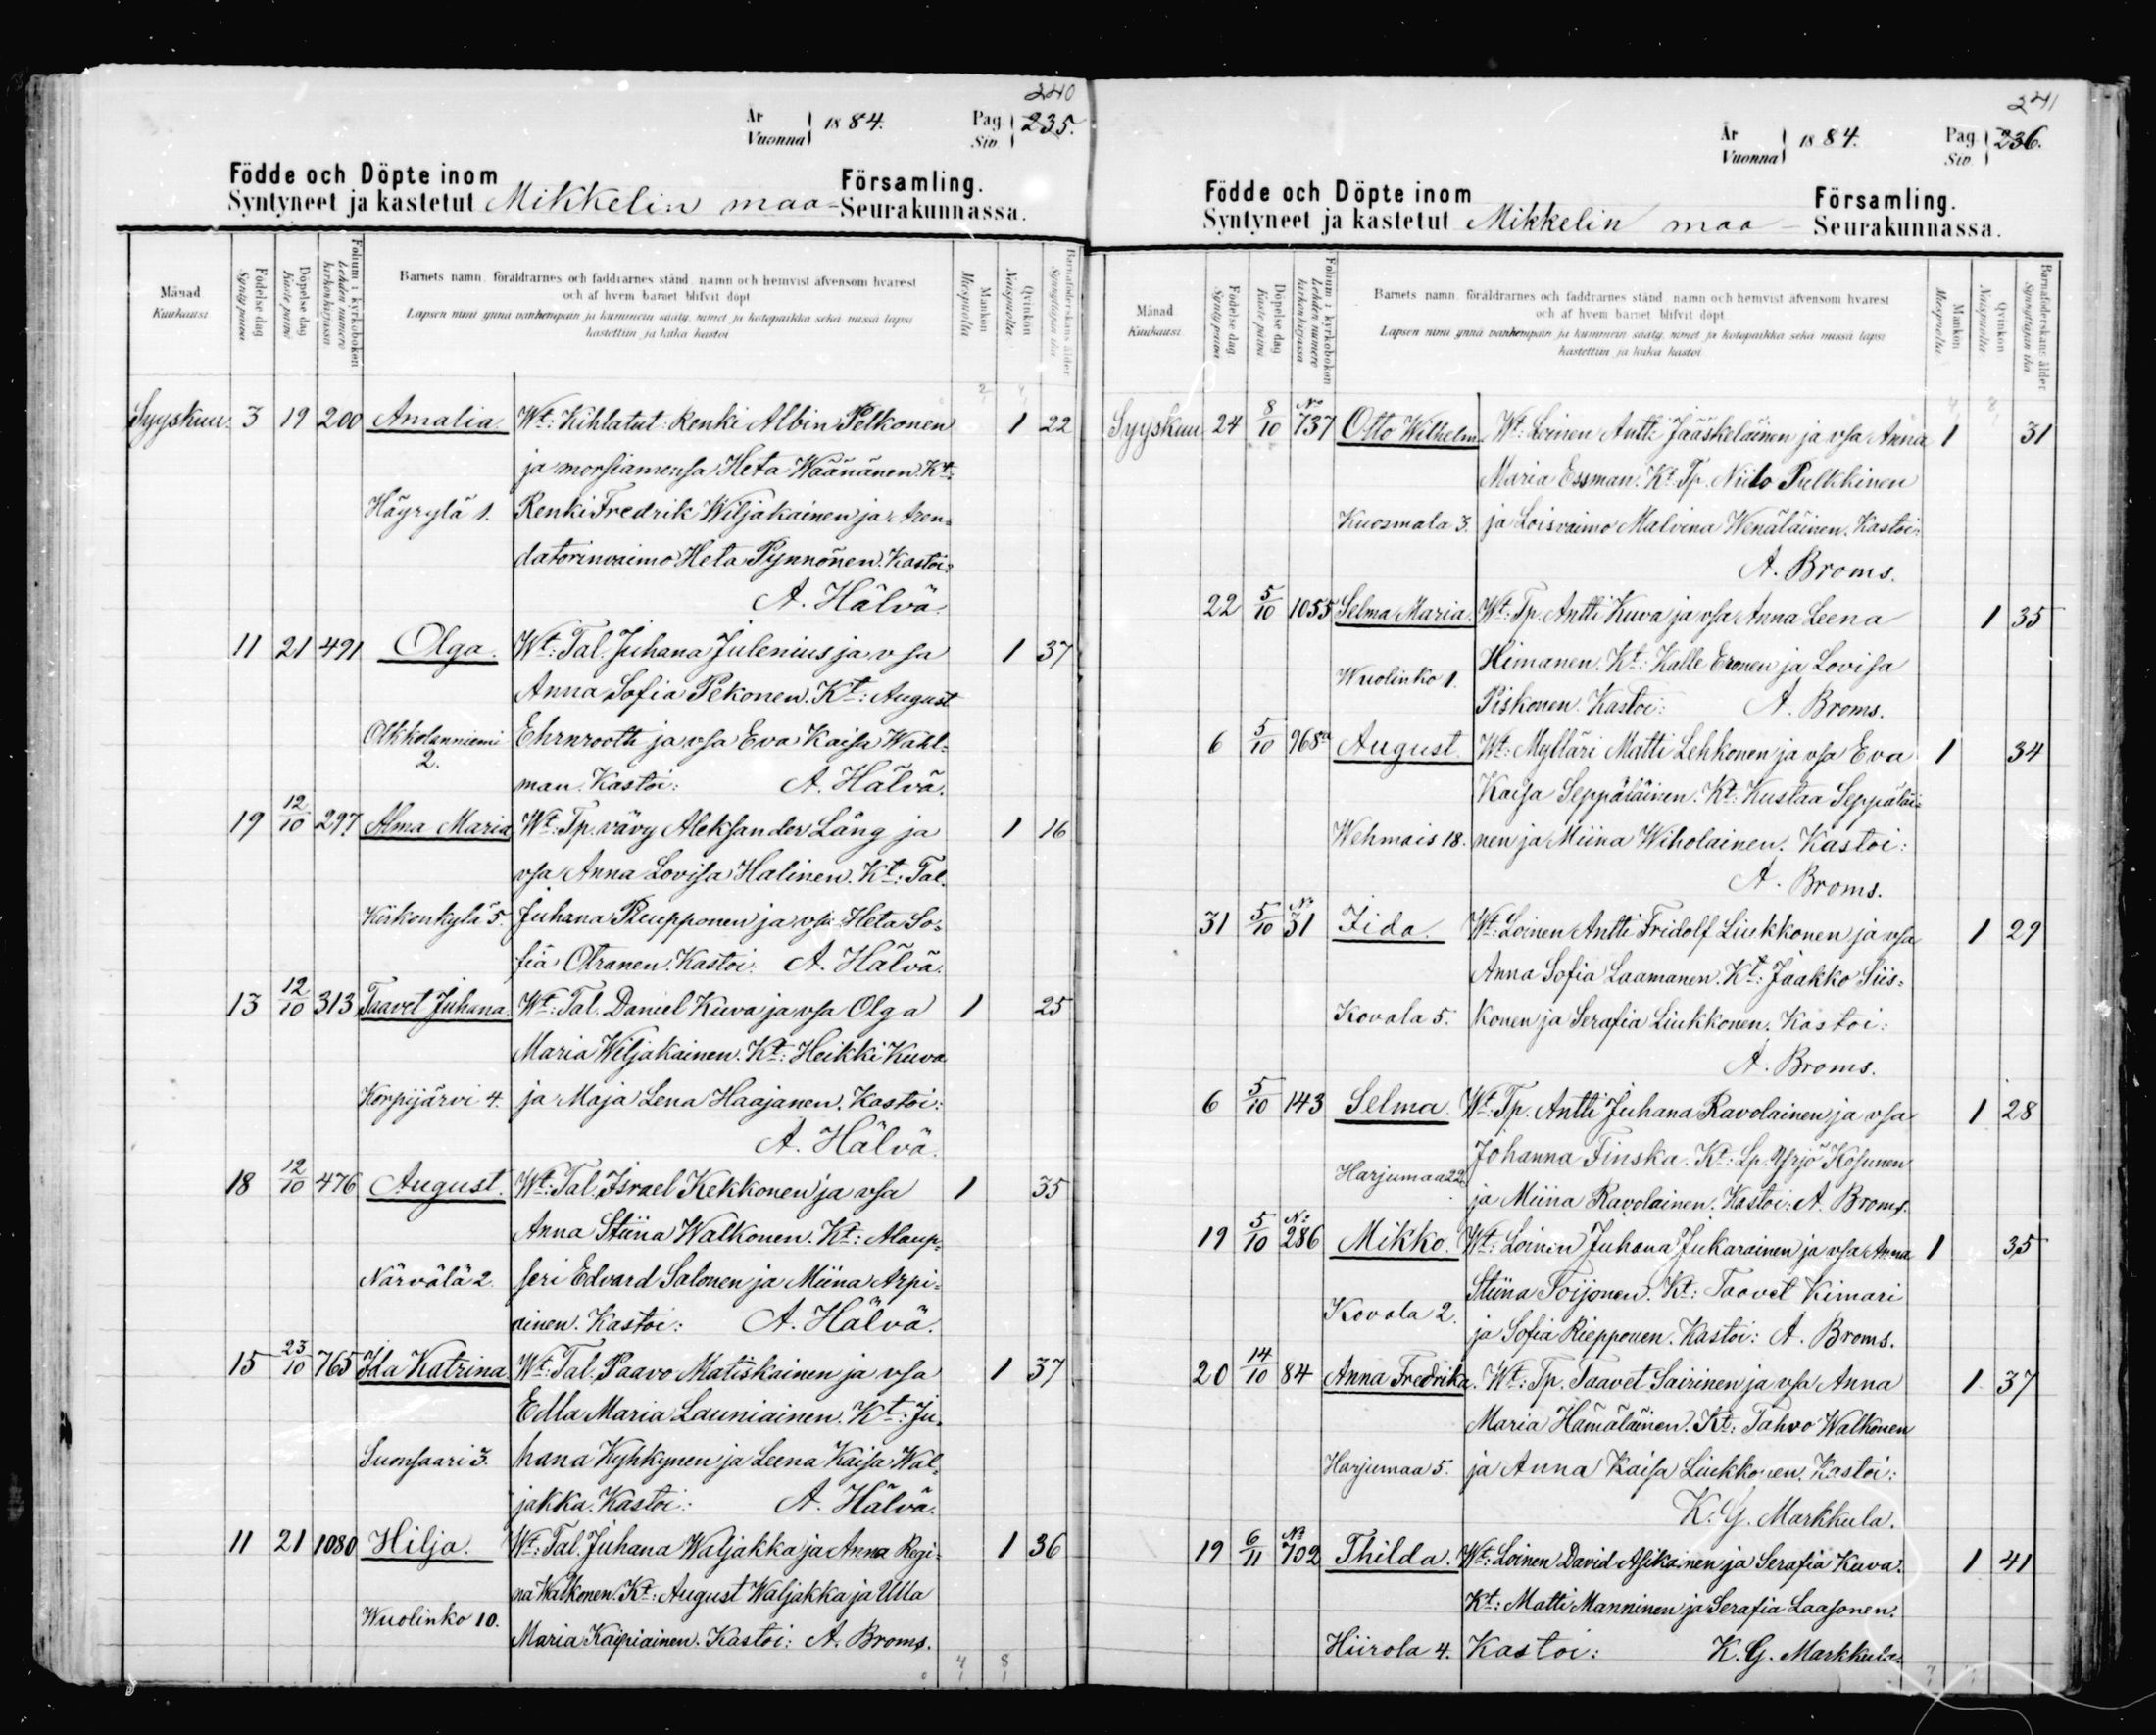 240
År
Vuonna 1884. Pag.
Siv. 235.
Födde och Döpte inom Församling.
Syntyneet ja kastetut Mikkelin maa- Seurakunnassa.
Månad
Kuukausi
Födelse dag
Synty päivä
Döpelse dag
Kaste päivä
Folium i kyrkoboken
Lehden numero
kirkonkirjassa
Barnets namn, föräldrarnes och faddrarnes stånd, namn och hemvist äfvensom hvarest
och af hvem barnet blifvit döpt
Lapsen nimi ynnä vanhempain ja kummein sääty, nimet ja kotopaikka sekä missä lapsi
kastettiin ja kuka kastoi
Mankön
Miespuolia
Qvinkön
Naispuolia
Barnaföderskans ålder
Synnyttäjän ikä
Syyskuu. 3 19 200 Amalia. Wt: Kihlatut: Renki Albin Pelkonen 1 22
ja morsiamensa Heta Wäänänen. Kt:
Häyrylä 1. Renki Fredrik Wiljakainen ja Aren-
datorinvaimo Heta Pynnönen. Kastoi:
A. Hälvä.
11 21 491 Olga. Wt: Tal. Juhana Julenius ja vsa 1 37
Anna Sofia Pekonen. Kt: August
Olkkolanniemi Ehrnrooth ja vsa Eva Kaisa Wahl-
2. man. Kastoi: A. Hälvä.
19 12/10 297 Alma Maria Wt: Tp. vävy Aleksander Lång ja 1 16
vsa Anna Lovisa Halinen. Kt: Tal.
Kirkonkylä 5. Juhana Ruupponen ja vsa Heta So-
fia Otranen. Kastoi: A. Hälvä.
13 12/10 313 Taavet Juhana. Wt: Tal. Daniel Kuva ja vsa Olga 1 25
Maria Wiljakainen. Kt: Heikki Kuva
Korpijärvi 4. ja Maja Lena Haajanen. Kastoi:
A. Hälvä.
18 12/10 476 August. Wt: Tal. Israel Kekkonen ja vsa 1 35
Anna Stiina Walkonen. Kt: Alaup-
Närvälä 2. seri Edvard Salonen ja Miina Arpi-
ainen. Kastoi: A. Hälvä.
15 23/10 765 Ida Katrina Wt: Tal. Paavo Matiskainen ja vsa 1 37
Edla Maria Launiainen. Kt: Ju-
Suonsaari 3. hana Kyhkynen ja Leena Kaisa Wal-
jakka. Kastoi: A. Hälvä.
11 21 1080 Hilja. Wt: Tal. Juhana Waljakka ja Anna Regi- 1 36
na Walkonen. Kt: August Waljakka ja Ulla
Wuolinko 10. Maria Kaipiainen. Kastoi: A. Broms.
4 8
241
År
Vuonna 1884. Pag.
Siv. 236.
Födde och Döpte inom Församling.
Syntyneet ja kastetut Mikkelin maa- Seurakunnassa.
Månad
Kuukausi
Födelse dag
Synty päivä
Döpelse dag
Kaste päivä
Folium i kyrkoboken
Lehden numero
kirkonkirjassa
Barnets namn, föräldrarnes och faddrarnes stånd, namn och hemvist äfvensom hvarest
och af hvem barnet blifvit döpt
Lapsen nimi ynnä vanhempain ja kummein sääty, nimet ja kotopaikka sekä missä lapsi
kastettiin ja kuka kastoi
Mankön
Miespuolia
Qvinkön
Naispuolia
Barnaföderskans ålder
Synnyttäjän ikä
Syyskuu 24 8/10 No 737 Otto Wilhelm. Wt: Loinen Antti Jääskeläinen ja vsa Anna 1 31
Maria Essman. Kt: Tp. Niilo Pulkkinen
Kuosmala 3. ja Loisvaimo Malvina Wenäläinen. Kastoi:
A. Broms.
22 5/10 1055 Selma Maria. Wt: Tp. Antti Kuva ja vsa Anna Leena 1 35
Himanen. Kt: Kalle Eronen ja Lovisa
Wuolinko 1. Piskonen. Kastoi: A. Broms.
6 5/10 968a August. Wt: Mylläri Matti Lehkonen ja vsa Eva 1 34
Kaisa Seppäläinen. Kt: Kustaa Seppäläi-
Wehmais 18. nen ja Miina Wiholainen. Kastoi:
A. Broms.
31 5/10 No 31 Iida. Wt: Loinen Antti Fridolf Liukkonen ja vsa 1 29
Anna Sofia Laamanen. Kt: Jaakko Siis-
Kovala 5. konen ja Serafia Liukkonen. Kastoi:
A. Broms.
6 5/10 143 Selma. Wt: Tp. Antti Juhana Ravolainen ja vsa 1 28
Johanna Finska. Kt: Lp. Yrjö Kosunen
Harjumaa 22. ja Miina Ravolainen. Kastoi: A. Broms.
19 5/10 No 286 Mikko. Wt: Loinen Juhana Jukarainen ja vsa Anna 1 35
Stiina Toijonen. Kt: Taavet Kimari
Kovala 2. ja Sofia Riepponen. Kastoi: A. Broms.
20 14/10 84 Anna Fredrika. Wt: Tp. Taavet Sairinen ja vsa Anna 1 37
Maria Hämäläinen. Kt: Tahvo Walkonen
Harjumaa 5. ja Anna Kaisa Liukkonen. Kastoi:
K. G. Markkula.
19 6/11 No 702 Thilda. Wt: Loinen David Asikainen ja Serafia Kuva. 1 41
Kt: Matti Manninen ja Serafia Laasonen.
Hiirola 4. Kastoi: K. G. Markkula.